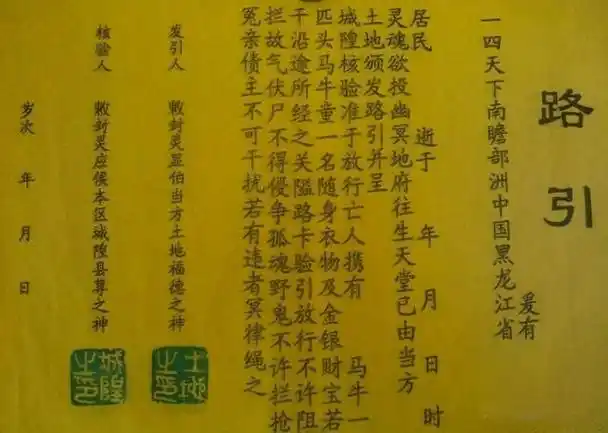 路引
一四天下南瞻部洲中国黑龙江省
爰有
居民 逝于 年 月 日 时
灵魂欲投幽冥地府往生天堂已由当方
土地颁发路引并呈
城隍核验准于放行亡人携有 马牛一
匹头马牛童一名随身衣物及金银财宝若
干沿途所经之关隘路卡验引放行不许阻
拦故气伏尸不得侵争孤魂野鬼不许拦抢
冤亲债主不可干扰若有违者冥律绳之
发引人 敕封灵显伯当方土地福德之神
土地之印
核验人 敕封灵应侯本区城隍县尊之神
城隍之印
岁次 年 月 日